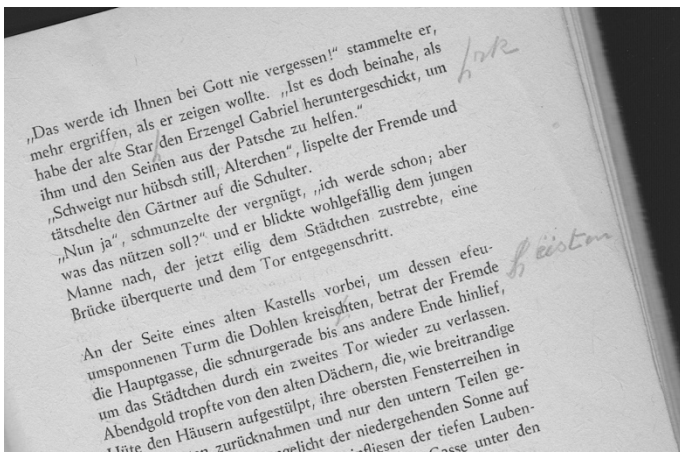 „Das werde ich Ihnen bei Gott nie vergessen!“ stammelte er,
mehr ergriffen, als er zeigen wollte. „Ist es doch beinahe, als
habe der alte Star den Erzengel Gabriel heruntergeschickt, um
ihm und den Seinen aus der Patsche zu helfen.“
„Schweigt nur hübsch still, Alterchen“, lispelte der Fremde und
tätschelte den Gärtner auf die Schulter.
„Nun ja“, schmunzelte der vergnügt, „ich werde schon; aber
was das nützen soll?“ und er blickte wohlgefällig dem jungen
Manne nach, der jetzt eilig dem Städtchen zustrebte, eine
Brücke überquerte und dem Tor entgegenschritt.
An der Seite eines alten Kastells vorbei, um dessen efeu-
umsponnenen Turm die Dohlen kreischten, betrat der Fremde
die Hauptgasse, die schnurgerade bis ans andere Ende hinlief,
um das Städtchen durch ein zweites Tor wieder zu verlassen.
Abendgold tropfte von den alten Dächern, die, wie breitrandige
Hüte den Häusern aufgestülpt, ihre obersten Fensterreihen in
zurücknahmen und nur den untern Teilen ge-
der niedergehenden Sonne auf
der tiefen Lauben-
unter den